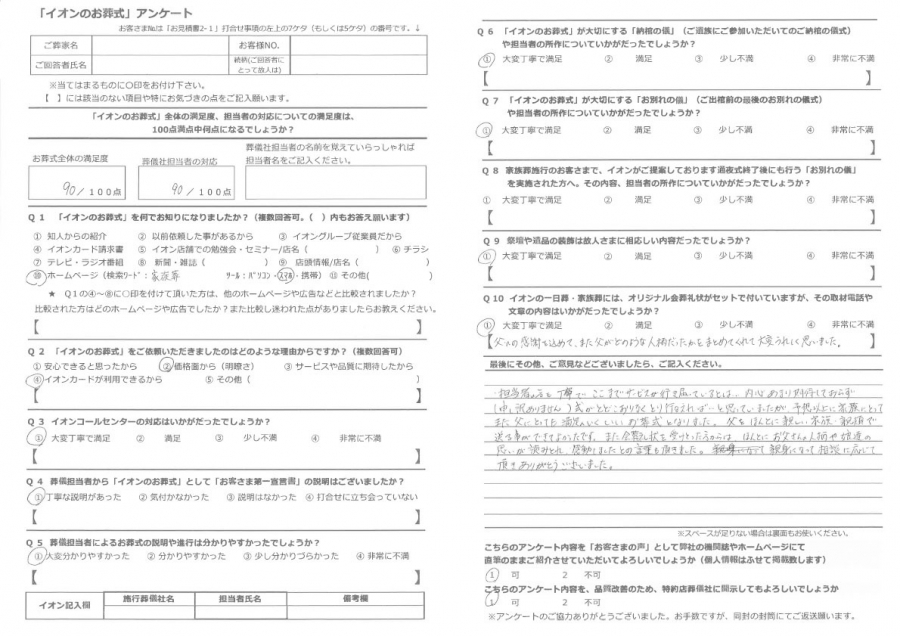 「イオンのお葬式」アンケート
お客さま№は「お見積書2-1」打合せ事項の左上の7ケタ（もしくは5ケタ）の番号です。↓
ご葬家名 お客様NO.
ご回答者氏名 続柄(ご回答者にとって故人は)
※当てはまるものに○印をお付け下さい。
【 】には該当のない項目や特にお気づきの点をご記入願います。
「イオンのお葬式」全体の満足度、担当者の対応についての満足度は、
100点満点中何点になるでしょうか？
お葬式全体の満足度 葬儀社担当者の対応
葬儀社担当者の名前を覚えていらっしゃれば
担当者名をご記入ください。
90/100点 90/100点
Q1 「イオンのお葬式」を何でお知りになりましたか？（複数回答可。（ ）内もお答え願います）
① 知人からの紹介 ② 以前依頼した事があるから ③ イオングループ従業員だから
④ イオンカード請求書 ⑤ イオン店舗での勉強会・セミナー/店名( ) ⑥ チラシ
⑦ テレビ・ラジオ番組 ⑧ 新聞・雑誌( ) ⑨ 店頭情報/店名( )
⑩ ホームページ（検索ﾜｰﾄﾞ：家族葬 ﾂｰﾙ：ﾊﾟｿｺﾝ・ｽﾏﾎ・携帯） ⑪ その他( )
★ Q1の④～⑧に○印を付けて頂いた方は、他のホームページや広告などと比較されましたか？
比較された方はどのホームページや広告でしたか？また比較し迷われた点がありましたらお教えください。
【 】
Q2 「イオンのお葬式」をご依頼いただきましたのはどのような理由からですか？（複数回答可）
① 安心できると思ったから ② 価格面から（明瞭さ） ③ サービスや品質に期待したから
④ イオンカードが利用できるから ⑤ その他（ ）
【 】
Q3 イオンコールセンターの対応はいかがだったでしょうか？
① 大変丁寧で満足 ② 満足 ③ 少し不満 ④ 非常に不満
【 】
Q4 葬儀担当者から「イオンのお葬式」として「お客さま第一宣言書」の説明はございましたか？
① 丁寧な説明があった ② 気付かなかった ③ 説明はなかった ④ 打合せに立ち会っていない
【 】
Q5 葬儀担当者によるお葬式の説明や進行は分かりやすかったでしょうか？
① 大変分かりやすかった ② 分かりやすかった ③ 少し分かりづらかった ④ 非常に不満
【 】
イオン記入欄 施行葬儀社名 担当者氏名 備考欄
Q6 「イオンのお葬式」が大切にする「納棺の儀」（ご遺族にご参加いただいてのご納棺の儀式）
や担当者の所作についていかがだったでしょうか？
① 大変丁寧で満足 ② 満足 ③ 少し不満 ④ 非常に不満
【 】
Q7 「イオンのお葬式」が大切にする「お別れの儀」（ご出棺前の最後のお別れの儀式）
や担当者の所作についていかがだったでしょうか？
① 大変丁寧で満足 ② 満足 ③ 少し不満 ④ 非常に不満
【 】
Q8 家族葬施行のお客さまで、イオンがご提案しております通夜式終了後にも行う「お別れの儀」
を実施された方へ。その内容、担当者の所作についていかがだったでしょうか？
① 大変丁寧で満足 ② 満足 ③ 少し不満 ④ 非常に不満
【 】
Q9 祭壇や遺品の装飾は故人さまに相応しい内容だったでしょうか？
① 大変丁寧で満足 ② 満足 ③ 少し不満 ④ 非常に不満
【 】
Q10 イオンの一日葬・家族葬には、オリジナル会葬礼状がセットで付いていますが、その取材電話や
文章の内容はいかがだったでしょうか？
① 大変丁寧で満足 ② 満足 ③ 少し不満 ④ 非常に不満
【父への感謝を込めて、また父がどのような人柄だったかをまとめてくれて大変うれしく思いました。】
最後にその他、ご意見などございましたら、ご記入ください。
担当者の方も丁寧で ここまでサービスが行き届いているとは、内心あまり期待しておらず
（申し訳ありません）式がとどこおりなくとり行なわれればいいと思っていましたが、予想以上に家族にとって
また父にとても満足のいくいいお葬式となりました。父もほんとに親しい家族・親族で
送る事ができてよかったです。また会葬礼状を受けとった方からは、ほんとにお父さんの人柄や娘達の
思いが読みとれ、感動しましたとの言葉も頂きました。 親身になって相談に応じて
頂きありがとうございました。
※スペースが足りない場合は裏面もお使いください。
こちらのアンケート内容を「お客さまの声」として弊社の機関誌やホームページにて
直筆のままご紹介させていただいてよろしいでしょうか（個人情報はふせて掲載致します）
1 可 2 不可
こちらのアンケート内容を、品質改善のため、特約店葬儀社に開示してもよろしいでしょうか
1 可 2 不可
※アンケートのご協力ありがとうございました。お手数ですが、同封の封筒にてご返送願います。